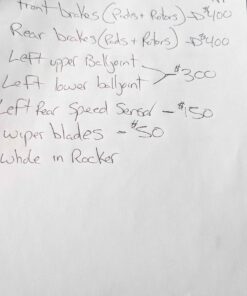 front brakes (Pads + Rotors) → $400
Rear brakes (Pads + Rotors) → $400
Left upper Balljoint
Left lower balljoint > $300
Left Rear Speed Sensor - $150
wiper blades - $50
Whole in Rocker